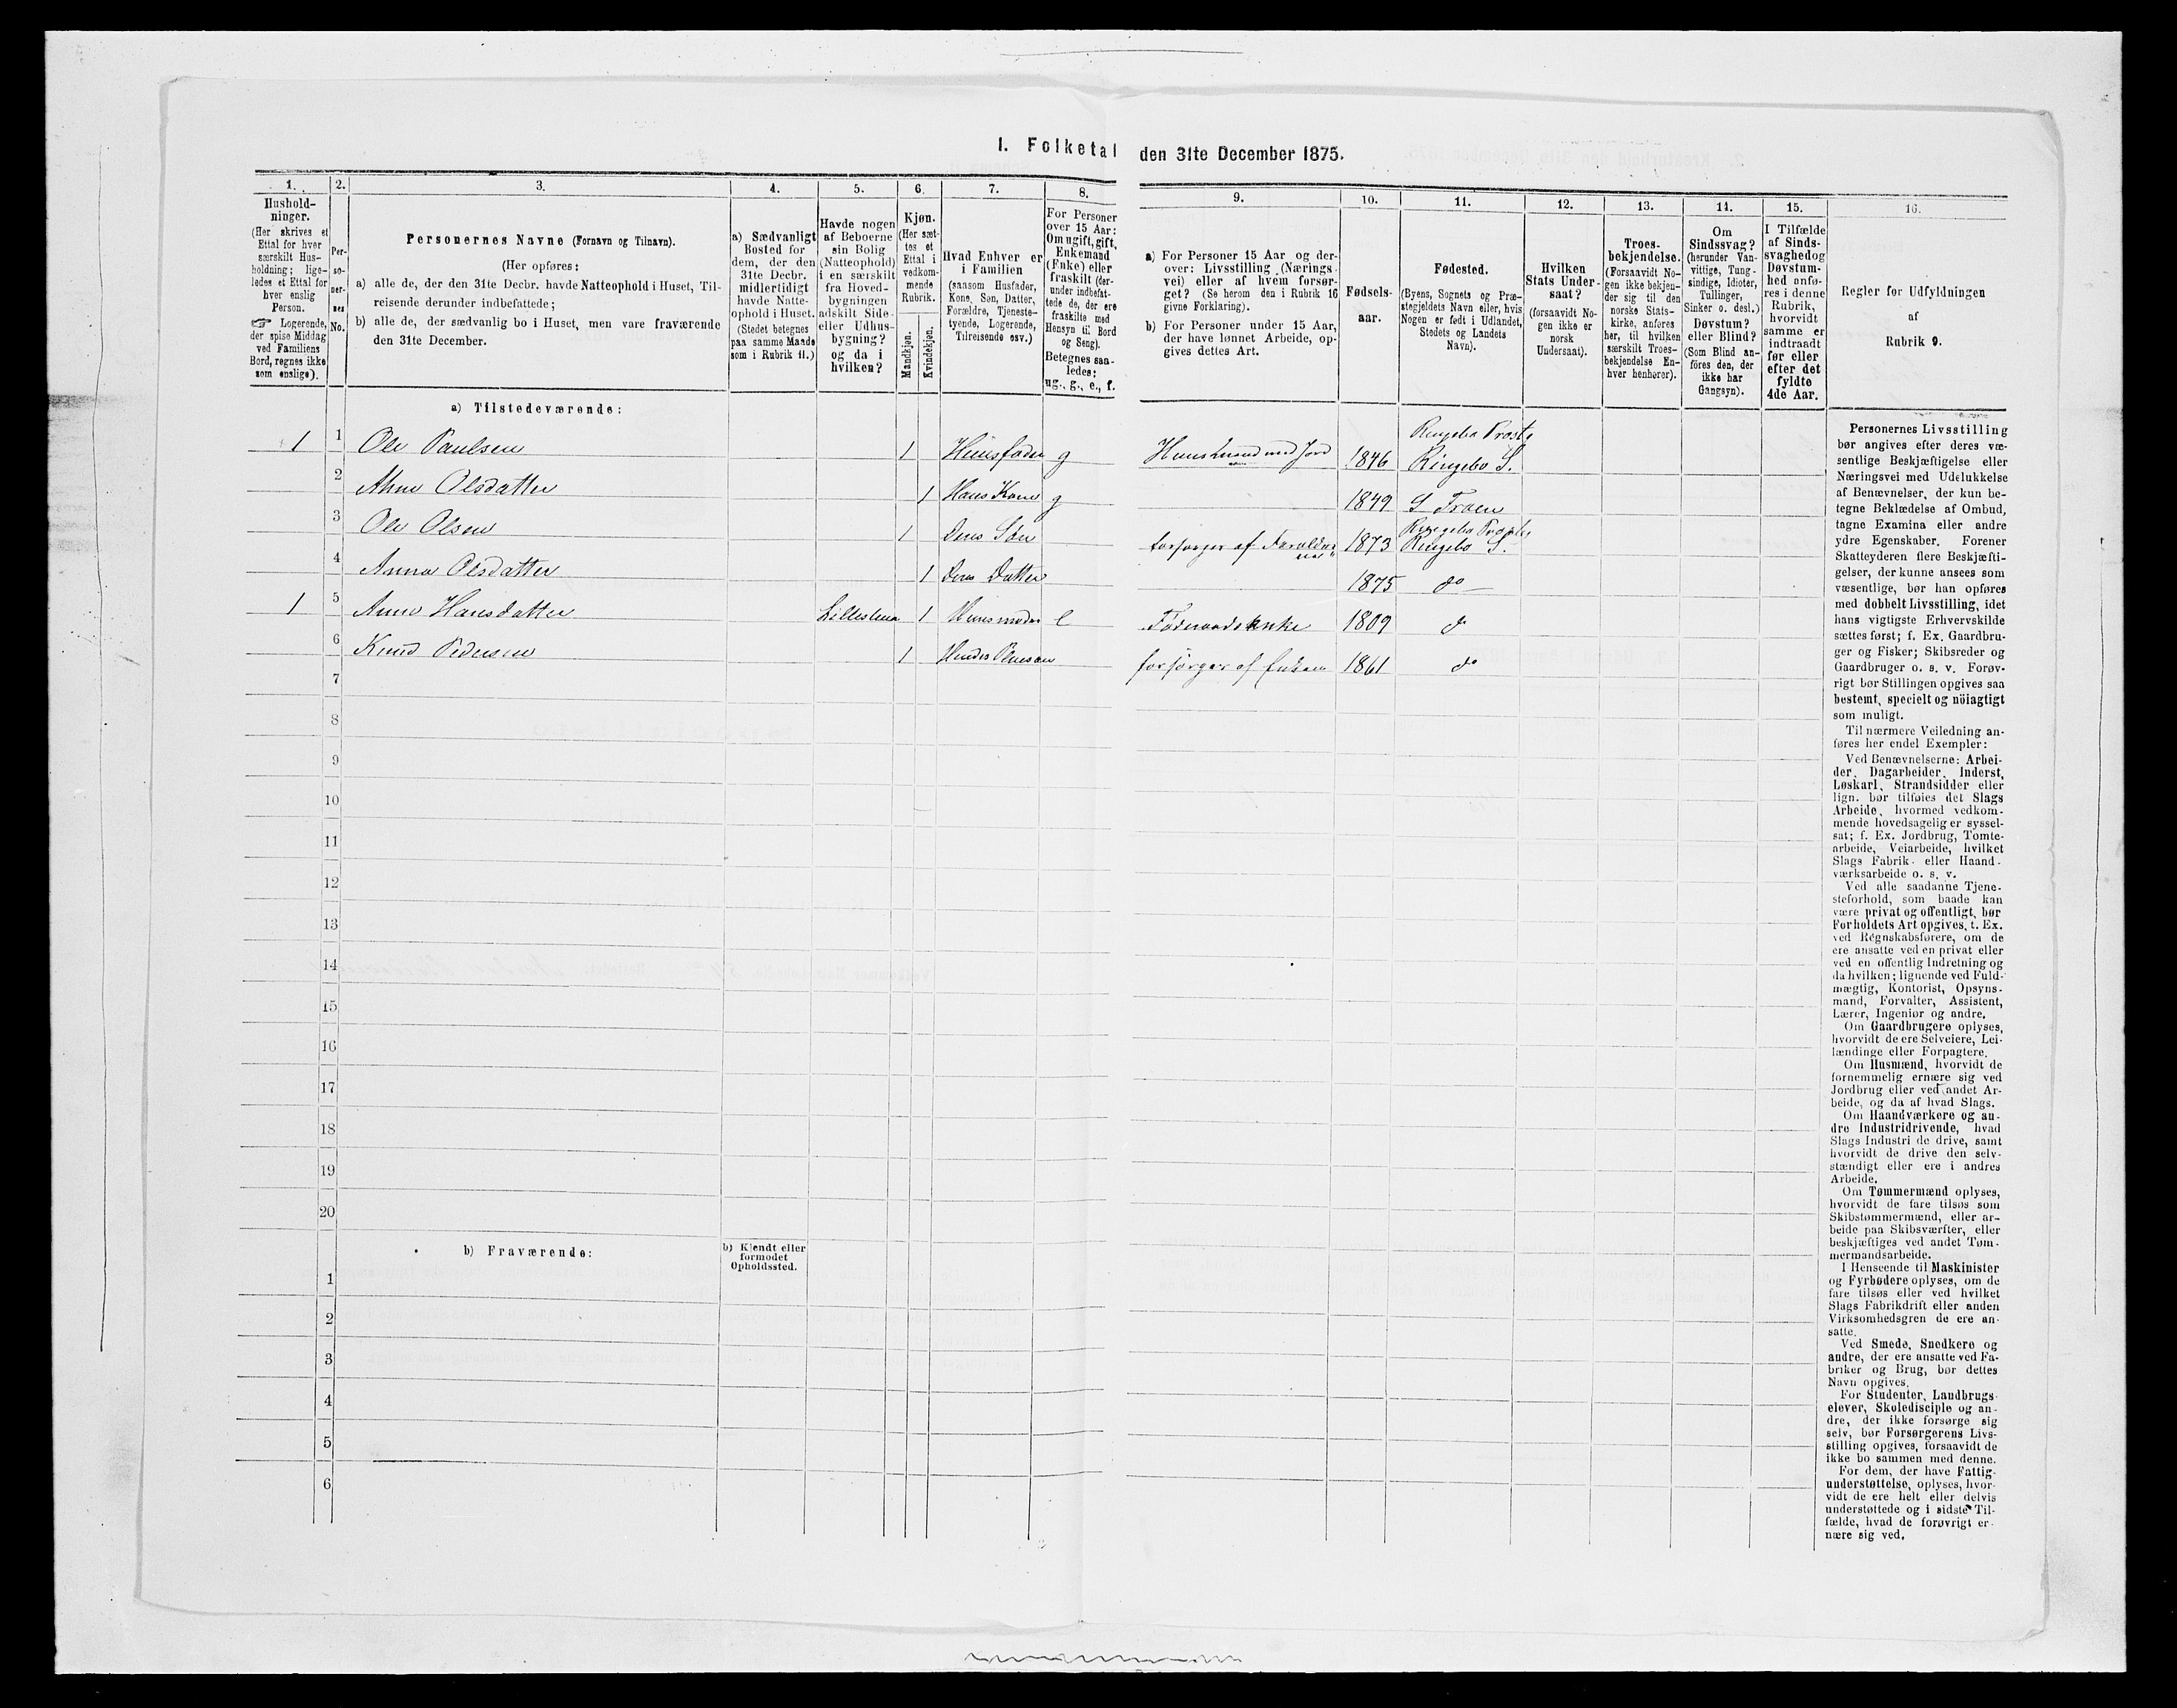 I. Folketal den 31te December 1875.
1.
Hushold-
ninger.
(Her skrives et
Ettal for hver
særskilt Hus-
holdning; lige-
ledes et Ettal for
hver enslig
Person.
☞ Logerende,
der spise Middag
ved Familiens
Bord, regnes ikke
som enslige).
2.
Per-
so-
ner-
nes
No.
3.
Personernes Navne (Fornavn og Tilnavn).
(Her opføres:
a) alle de, der den 31te Decbr. havde Natteophold i Huset, Til-
reisende derunder indbefattede;
b) alle de, der sædvanlig bo i Huset, men vare fraværende
den 31te December.
4.
a) Sædvanligt
Bosted for
dem, der den
31te Decbr.
midlertidigt
havde Natte-
ophold i Huset.
(Stedet betegnes
paa samme Maade
som i Rubrik 11.)
5.
Havde nogen
af Beboerne
sin Bolig
(Natteophold)
i en særskilt
fra Hoved-
bygningen
adskilt Side-
eller Udhus-
bygning?
og da i
hvilken?
6.
Kjøn.
(Her sæt-
tes et
Ettal i
vedkom-
mende
Rubrik.
Mandkjøn.
Kvindekjøn.
7.
Hvad Enhver er
i Familien
(saasom Husfader,
Kone, Søn, Datter,
Forældre, Tjeneste-
tyende, Logerende,
Tilreisende osv.)
8.
For Personer
over 15 Aar:
Om ugift, gift,
Enkemand
(Enke) eller
fraskilt (der-
under indbefat-
tede de, der ere
fraskilte med
Hensyn til Bord
og Seng).
Betegnes saa-
ledes:
ug., g., e., f.
9.
a) For Personer 15 Aar og der-
over: Livsstilling (Nærings-
vei) eller af hvem forsør-
get? (Se herom den i Rubrik 16
givne Forklaring).
b) For Personer under 15 Aar,
der have lønnet Arbeide, op-
gives dettes Art.
10.
Fødsels-
aar.
11.
Fødested.
(Byens, Sognets og Præ-
stegjeldets Navn eller, hvis
Nogen er født i Udlandet,
Stedets og Landets
Navn).
12.
Hvilken
Stats Under-
saat?
(forsaavidt No-
gen ikke er
norsk
Undersaat).
13.
Troes-
bekjendelse.
(Forsaavidt No-
gen ikke bekjen-
der sig til den
norske Stats-
kirke, anføres
her, til hvilken
særskilt Troes-
bekjendelse En-
hver henhører).
14.
Om
Sindssvag?
(herunder Van-
vittige, Tung-
sindige, Idioter,
Tullinger,
Sinker o. desl.)
Døvstum?
eller Blind?
(Som Blind an-
føres den, der
ikke har
Gangsyn).
15.
I Tilfælde
af Sinds-
svaghed og
Døvstum-
hed anfø-
res i denne
Rubrik,
hvorvidt
samme er
indtraadt
før eller
efter det
fyldte
4de Aar.
16.
Regler for Udfyldningen
af
Rubrik 9.
a) Tilstedeværende:
1 1 Ole Paulsen 1 Huusfader g Huusmand med Jord 1846 Ringebo Præstg Ringebo S.
2 Ahne Olsdatter 1 Hans Kone g 1849 S Froen
3 Ole Olsen 1 Deres Søn forsørges af Forældrene 1873 Ringebo Præstg Ringebo S.
4 Anna Olsdatter 1 Deres Datter 1875 do
1 5 Anne Hansdatter 1 Huusmoder e Føderaadsenke 1809 do
6 Knud Pedersen 1 forsørges af Enken 1861 do
7
8
9
10
11
12
13
14
15
16
17
18
19
20
b) Fraværende:
b) Kjendt eller
formodet
Opholdssted.
1
2
3
4
5
6
Personernes Livsstilling
bør angives efter deres væ-
sentlige Beskjæftigelse eller
Næringsvei med Udelukkelse
af Benævnelser, der kun be-
tegne Beklædelse af Ombud,
tagne Examina eller andre
ydre Egenskaber. Forener
Skatteyderen flere Beskjæfti-
gelser, der kunne ansees som
væsentlige, bør han opføres
med dobbelt Livsstilling, idet
hans vigtigste Erhvervskilde
sættes først; f. Ex. Gaardbru-
ger og Fisker; Skibsreder og
Gaardbruger o. s. v. Forøv-
rigt bør Stillingen opgives saa
bestemt, specielt og nöiagtigt
som muligt.
Til nærmere Veiledning an-
føres her endel Exempler:
Ved Benævnelserne: Arbei-
der, Dagarbeider, Inderst,
Løskarl, Strandsidder eller
lign. bør tilføies det Slags
Arbeide, hvormed vedkom-
mende hovedsagelig er syssel-
sat; f. Ex. Jordbrug, Tomte-
arbeide, Veiarbeide, hvilket
Slags Fabrik- eller Haand-
værksarbeide o. s. v.
Ved alle saadanne Tjene-
steforhold, som baade kan
være privat og offentligt, bør
Forholdets Art opgives, t. Ex.
ved Regnskabsførere, om de
ere ansatte ved en privat eller
ved en offentlig Indretning og
da hvilken; lignende ved Fuld-
mægtig, Kontorist, Opsyns-
mand, Forvalter, Assistent,
Lærer, Ingeniør og andre.
Om Gaardbrugere oplyses,
hvorvidt de ere Selveiere, Lei-
lændinge eller Forpagtere.
Om Husmænd, hvorvidt de
fornemmelig ernære sig ved
Jordbrug eller ved andet Ar-
beide, og da af hvad Slags.
Om Haandværkere og an-
dre Industridrivende, hvad
Slags Industri de drive, samt
hvorvidt de drive den selv-
stændigt eller ere i andres
Arbeide.
Om Tømmermænd oplyses,
hvorvidt de fare tilsøs som
Skibstømmermænd, eller ar-
beide paa Skibsværfter, eller
beskjæftiges ved andet Tøm-
mermandsarbeide.
I Henseende til Maskinister
og Fyrbødere oplyses, om de
fare tilsøs eller ved hvilket
Slags Fabrikdrift eller anden
Virksomhedsgren de ere an-
satte.
Ved Smede, Snedkere og
andre, der ere ansatte ved Fa-
briker og Brug, bør dettes
Navn opgives.
For Studenter, Landbrugs-
elever, Skoledisciple og an-
dre, der ikke forsørge sig
selv, bør Forsørgerens Livs-
stilling opgives, forsaavidt de
ikke bo sammen med denne.
For dem, der have Fattig-
understøttelse, oplyses, hvor-
vidt de ere helt eller delvis
understøttede og i sidste Til-
fælde, hvad de forøvrigt er-
nære sig ved.